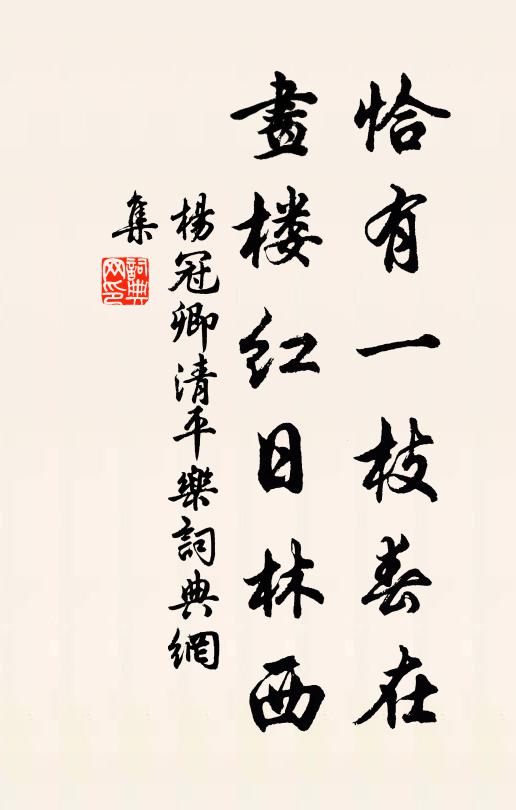 恰有一枝春在
畫楼红日林西
楊冠卿清平樂詞典網
集
詞典
网印